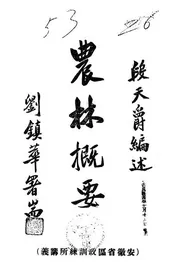 53
26
段天爵編述
農林概要
劉鎮華署耑
安徽省區政訓練所講義